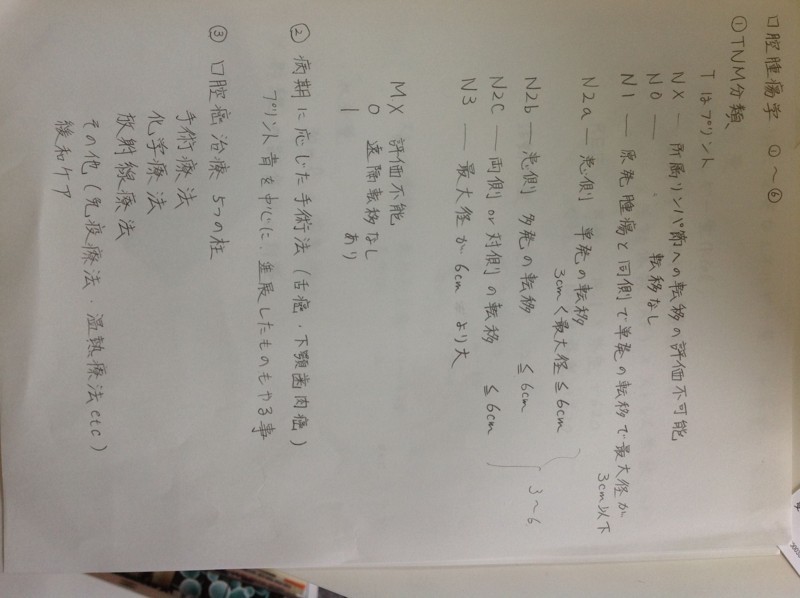 口腔腫瘍学 ①～⑥
①TNM分類
Tはプリント
NX ― 所属リンパ節への転移の評価不可能
N0 ― 転移なし
N1 ― 原発腫瘍と同側で単発の転移で最大径が
3cm以下
N2a ― 患側 単発の転移
3cm<最大径≦6cm
N2b ― 患側 多発の転移 ≦6cm
N2c ― 両側or対側の転移 ≦6cm
3～6
N3 ― 最大径が6cmより大
MX 評価不能
0 遠隔転移なし
1 あり
② 病期に応じた手術法(舌癌・下顎歯肉癌)
プリント青を中心に、進展したものもやる事
③ 口腔癌治療 5つの柱
手術療法
化学療法
放射線療法
その他(免疫療法・温熱療法etc)
緩和ケア